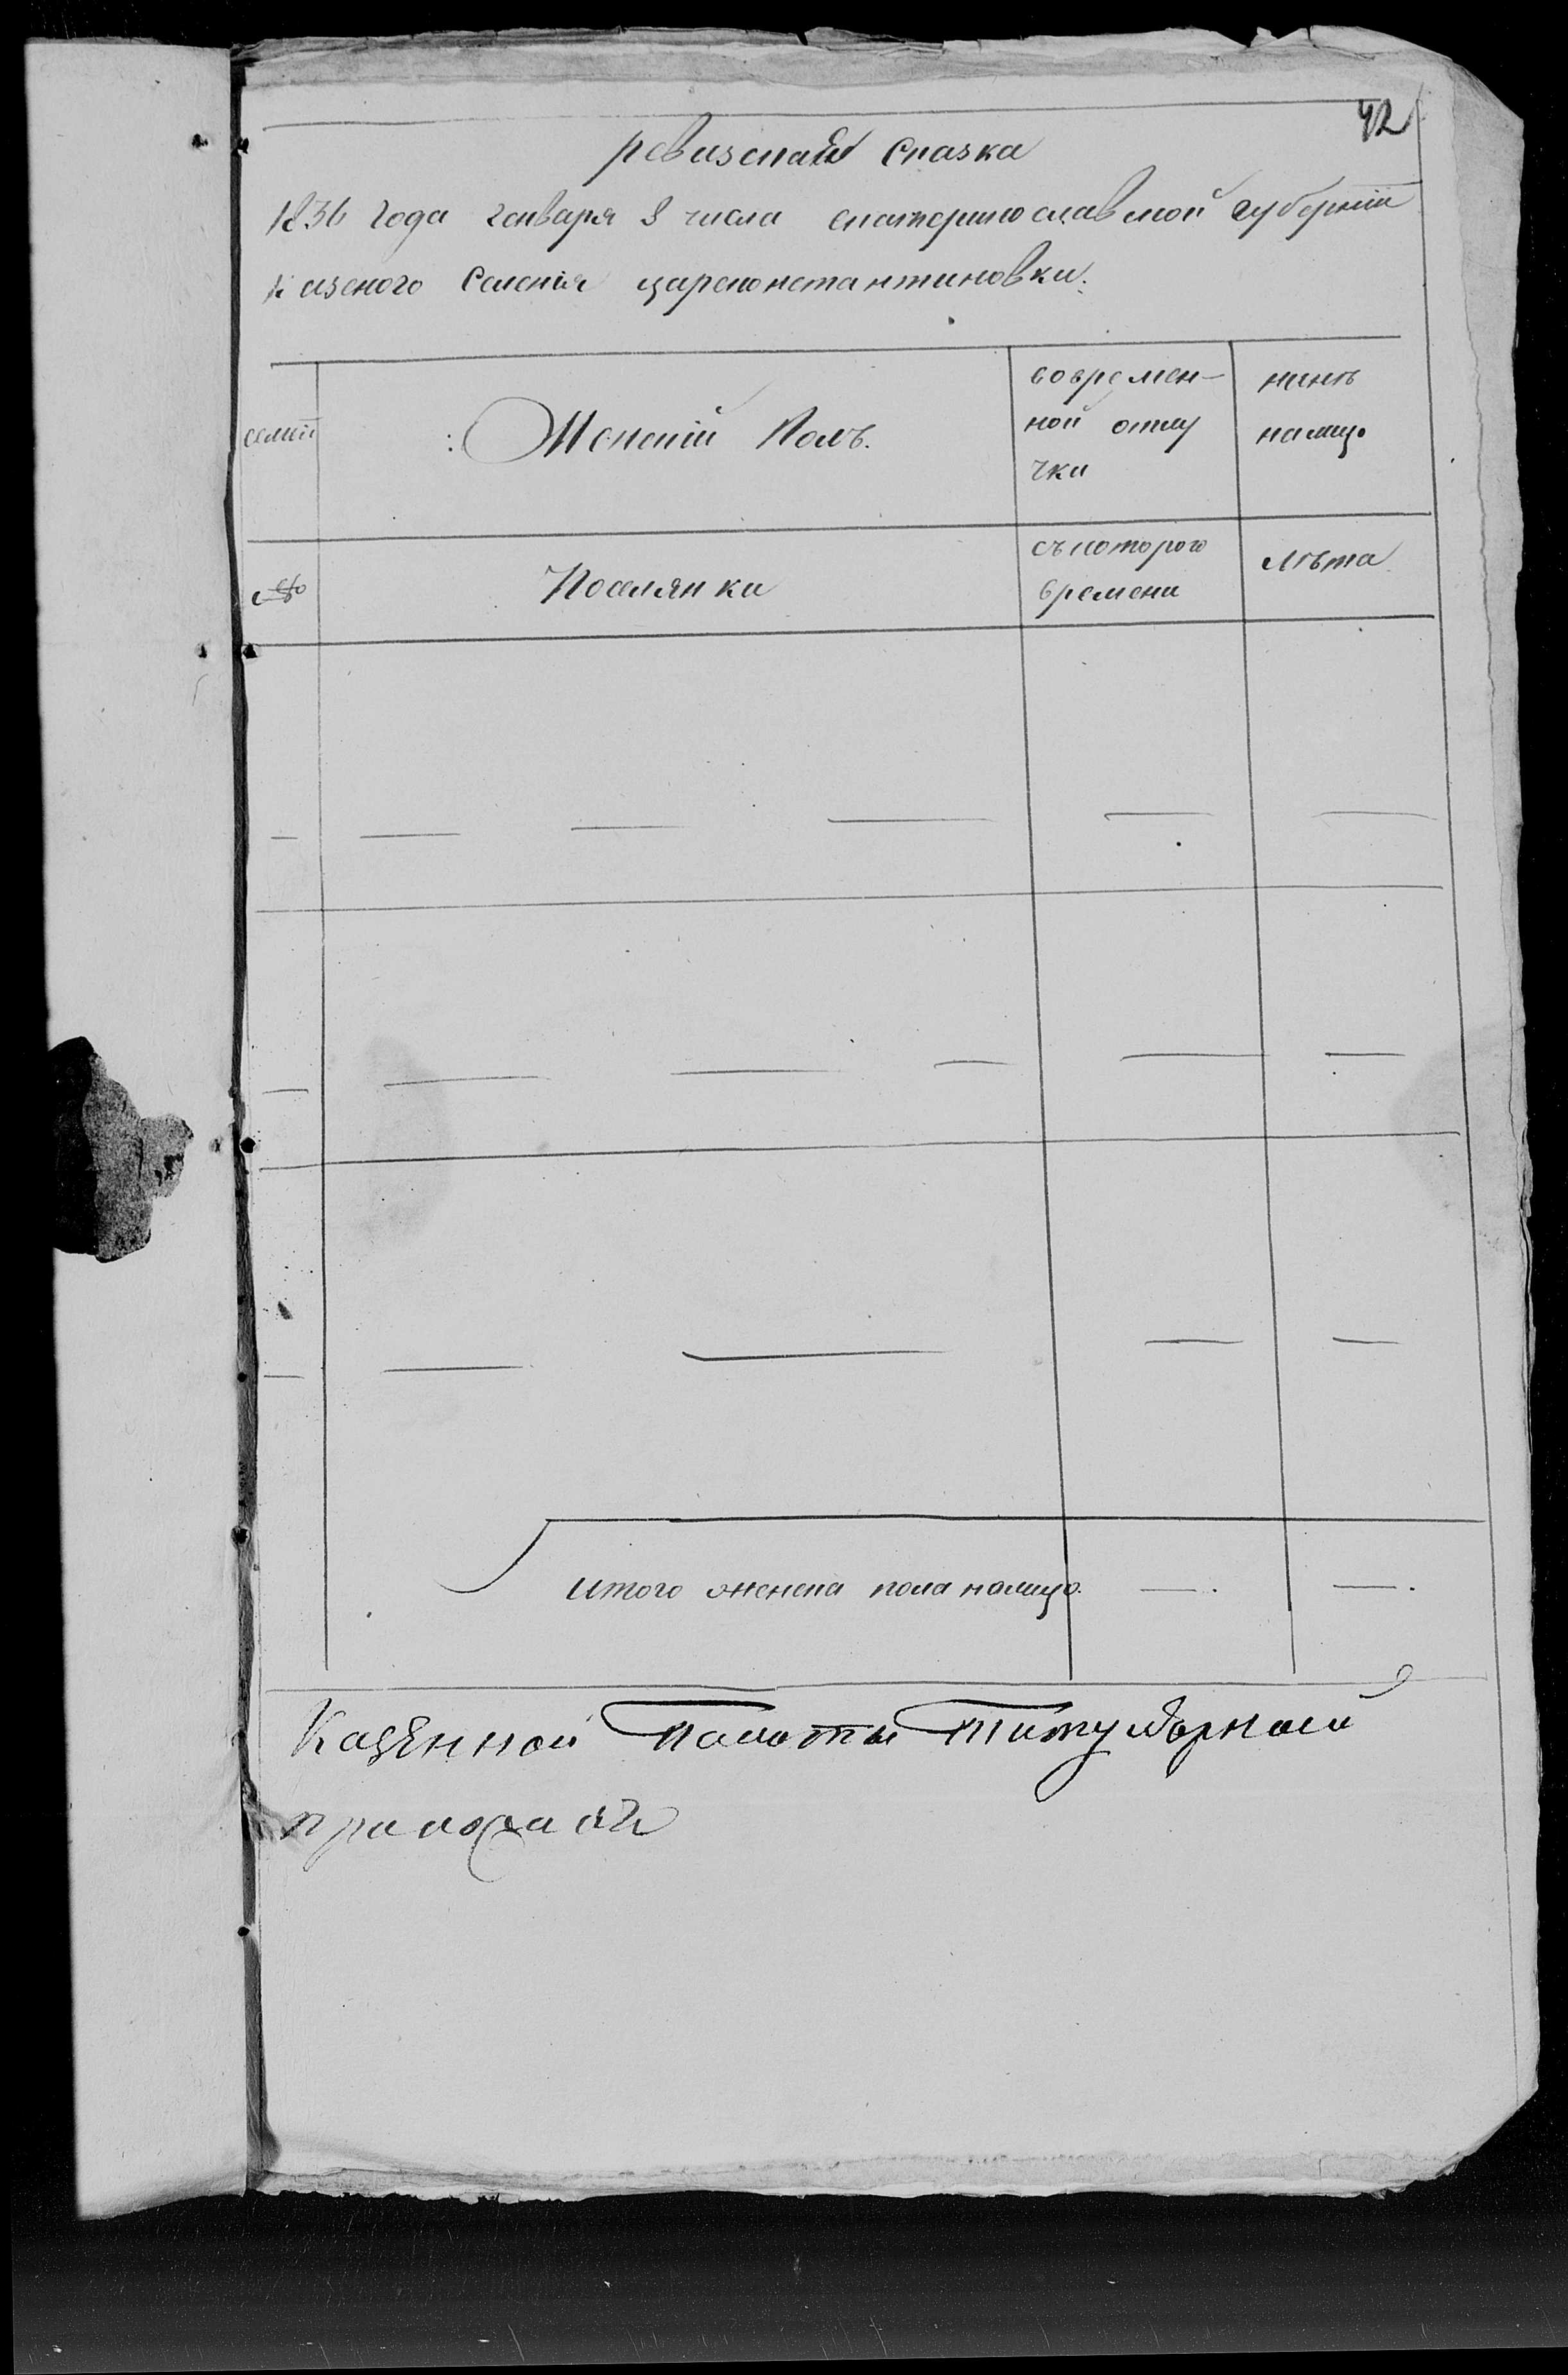 42
ревизская Сказка
1836 года генваря 8 числа екатеринославской губернiи
Казеного Селенiя цареконстантиновки.
семiи
Женскiй Полъ.
вовремен-
ной отлу
чки
нинѣ
налицо
№
Поселянки
съ которого
времени
лѣта
— — — — — —
— — — — — —
— — — — —
итого женска пола налицо. — . — .
Казенной Палаты Титулярной